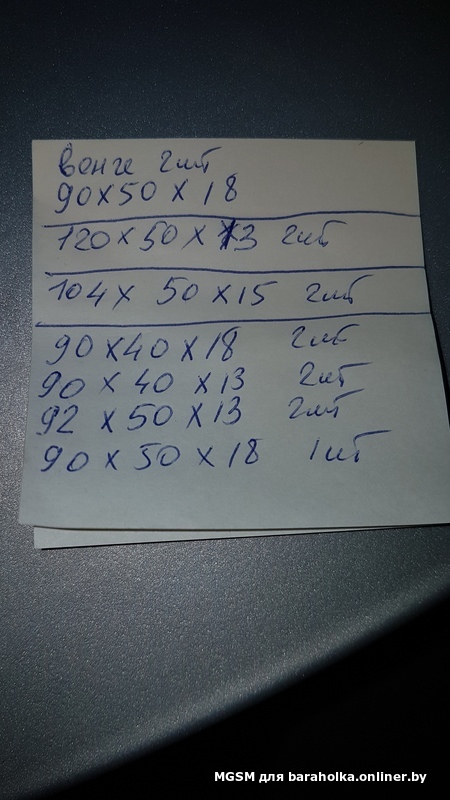 венге 2шт
90x50 x 18
120x50 x 13 2шт
104x 50 x15 2шт
90x40 x18 2шт
90 x 40 x 13 2шт
92 x 50 x 13 2шт
90 x 50 x 18 1шт
MGSM для baraholka.onliner.by